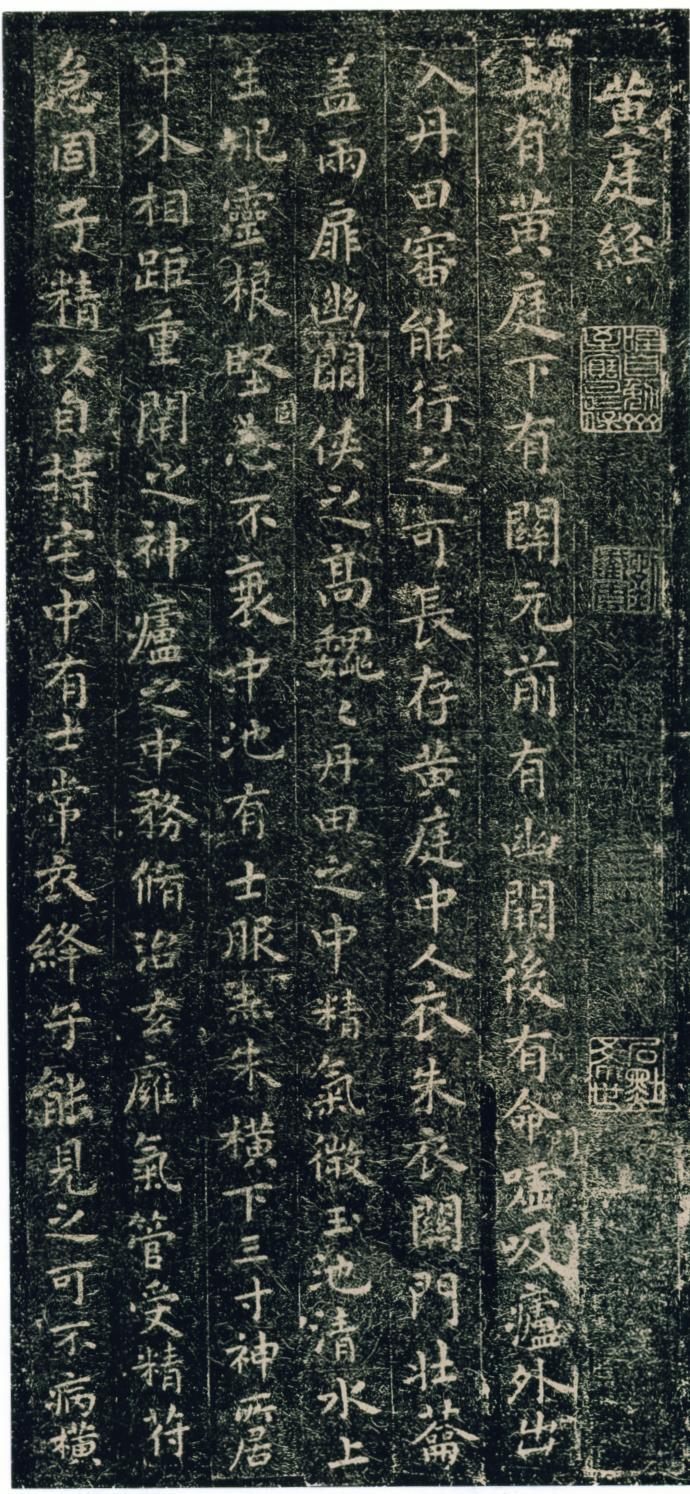 黄庭経
上有黄庭下有關元前有幽闕後有命嘘吸廬外出
入丹田審能行之可長存黄庭中人衣朱衣關門壮蘥
盖兩扉幽闕侠之高巍〻丹田之中精氣微玉池清水上
生肥靈根堅志不衰中池有士服赤朱横下三寸神所居
中外相距重閉之神廬之中務脩治玄癰氣管受精苻
急固子精以自持宅中有士常衣絳子能見之可不病横